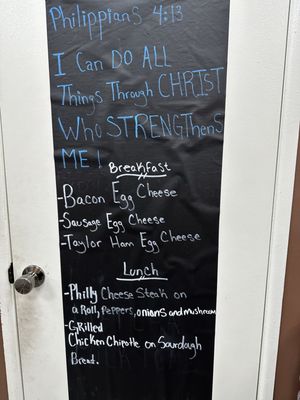 Philippians 4:13
I Can DO ALL
Things Through CHRIST
Who STRENGThens
ME !
Breakfast
-Bacon Egg Cheese
-Sausage Egg Cheese
-Taylor Ham Egg Cheese
Lunch
-Philly Cheese Steak on
a Roll, Peppers, onions and mushroom
-Grilled
Chicken Chipotle on Sourdagh
Bread.